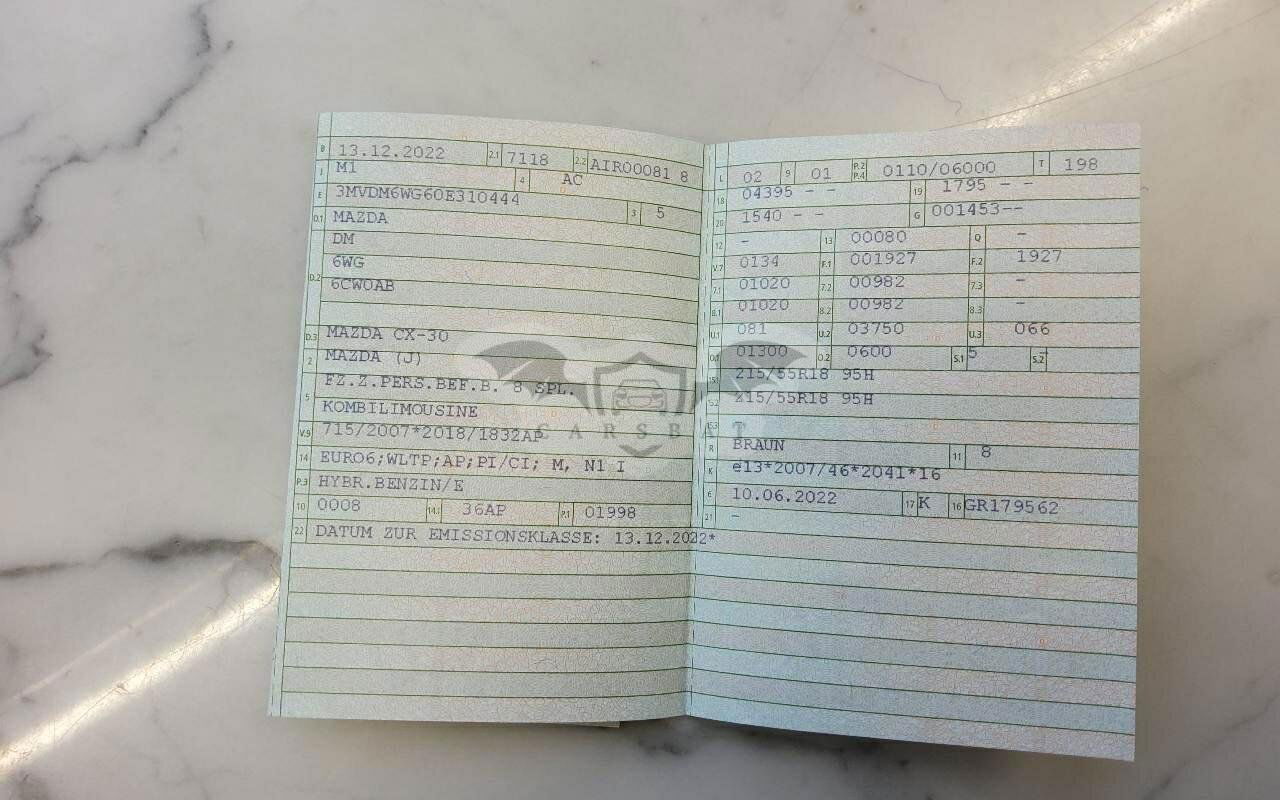 B 13.12.2022 2.1 7118 2.2 AIR00081 8
J M1 4 AC
E 3MVDM6WG60E310444 3 5
D.1 MAZDA
DM
D.2 6WG
6CWOAB
D.3 MAZDA CX-30
2 MAZDA (J)
5 FZ.Z.PERS.BEF.B. 8 SPL.
KOMBILIMOUSINE
V.9 715/2007*2018/1832AP
14 EURO6;WLTP;AP;PI/CI; M, N1 I
P.3 HYBR.BENZIN/E
10 0008 14.1 36AP P.1 01998
22 DATUM ZUR EMISSIONSKLASSE: 13.12.2022*
L 02 9 01 P.2 P.4 0110/06000 T 198
18 04395 - - 19 1795 - -
20 1540 - - G 001453--
12 - 13 00080 Q -
V.7 0134 F.1 001927 F.2 1927
7.1 01020 7.2 00982 7.3 -
8.1 01020 8.2 00982 8.3 -
U.1 081 U.2 03750 U.3 066
O.1 01300 O.2 0600 S.1 5 S.2 -
215/55R18 95H
215/55R18 95H
-
R BRAUN 11 8
K e13*2007/46*2041*16
6 10.06.2022 17 K 16 GR179562
21 -
CARSBAT